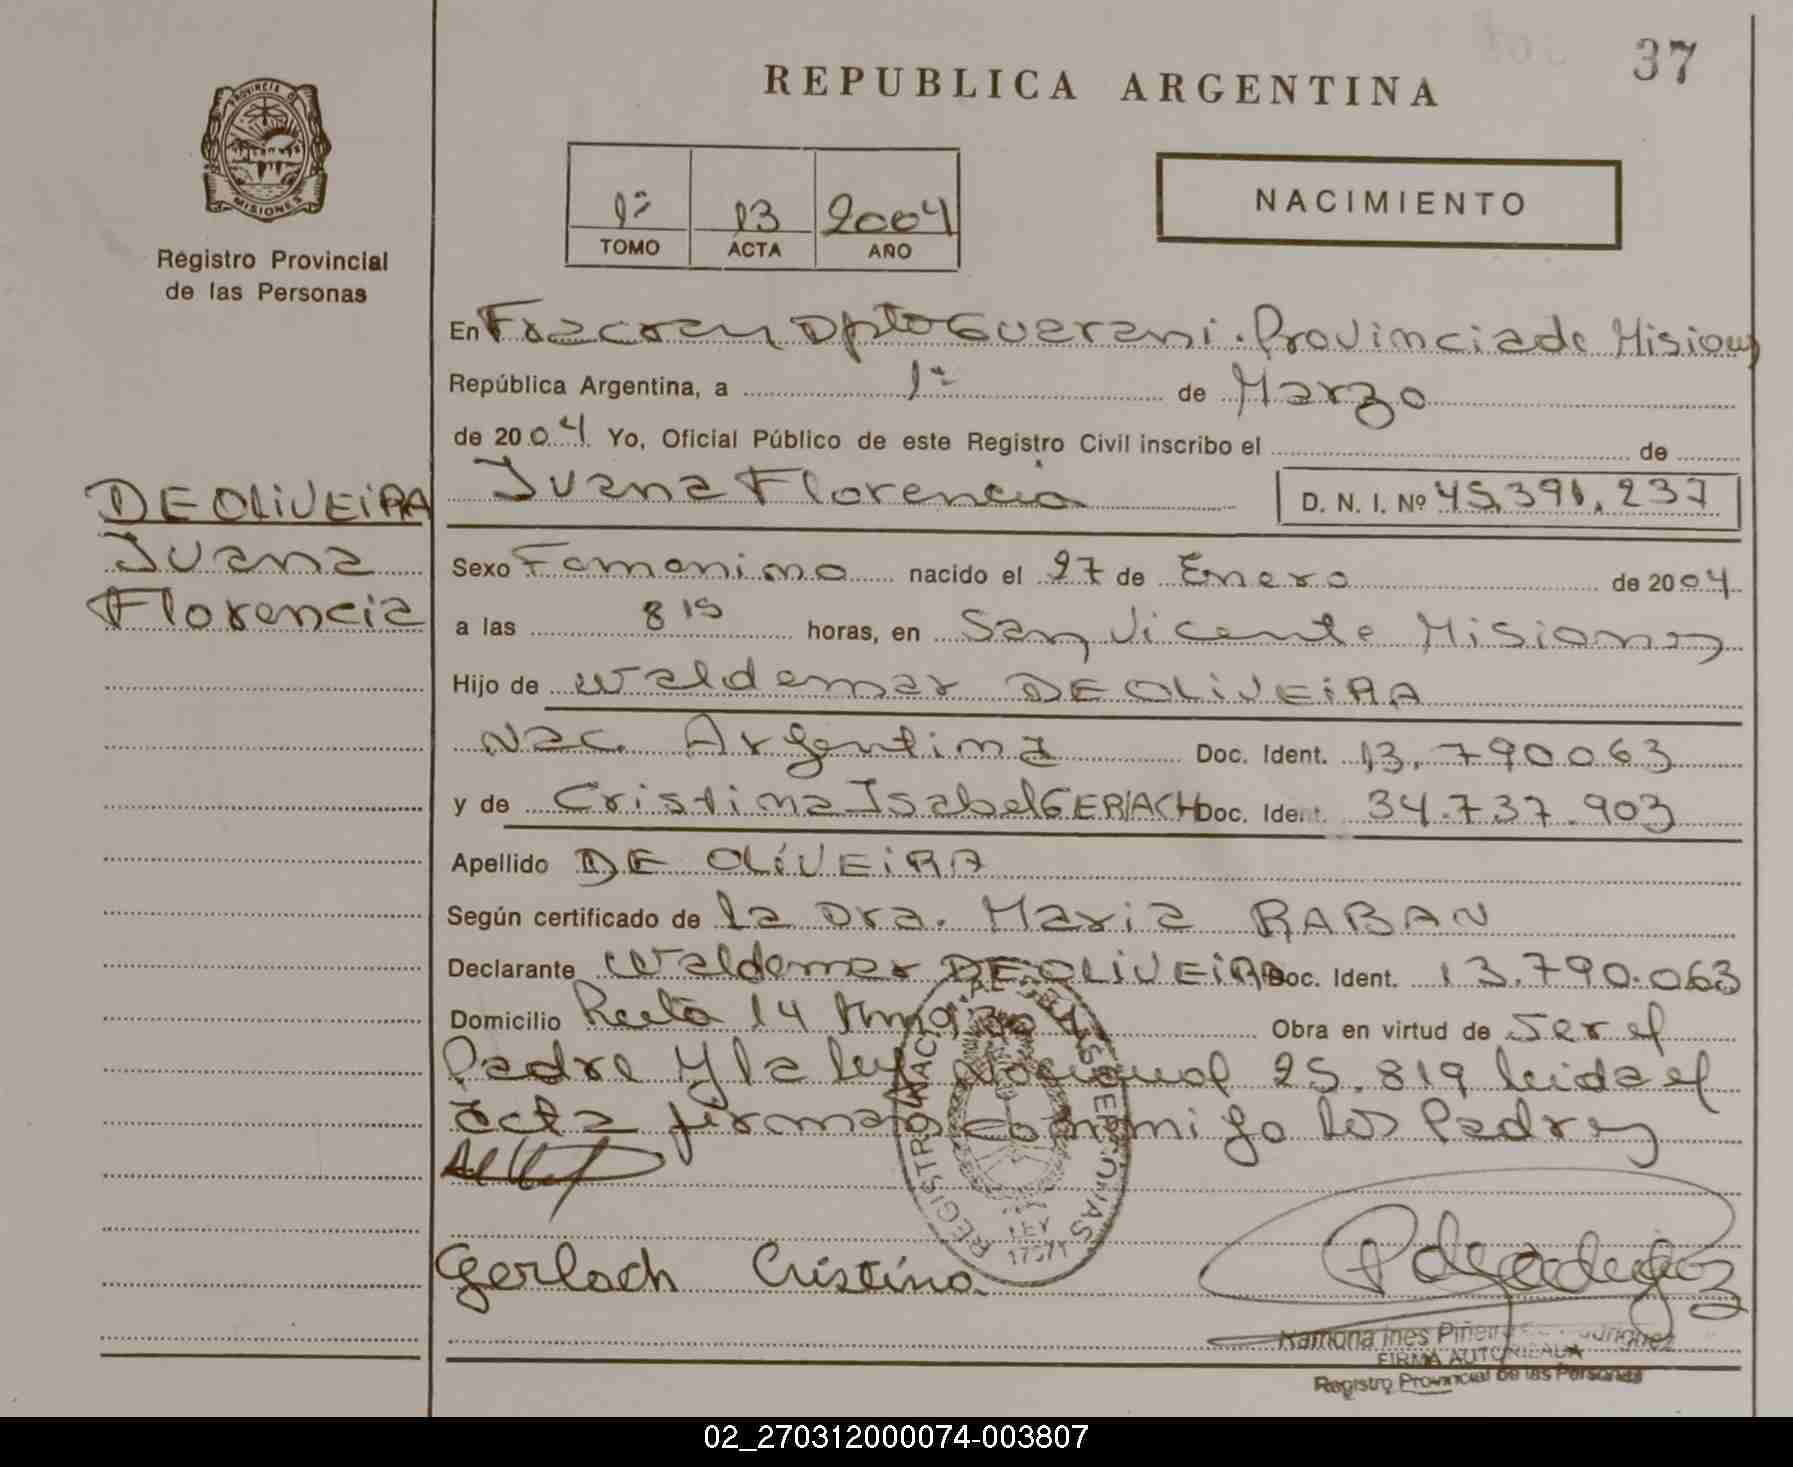 37
REPUBLICA ARGENTINA
PROVINCIA DE
MISIONES
Registro Provincial
de las Personas
1º 13 2004
TOMO ACTA AÑO
NACIMIENTO
En Fracran Dpto Guarani. Provincia de Misiones
República Argentina, a 1º de Marzo
de 2004 Yo, Oficial Público de este Registro Civil inscribo el de
Juana Florencia D. N. I. Nº 45.391.237
DE OLIVEIRA
Juana
Florencia
Sexo Femenino nacido el 27 de Enero de 2004
a las 8 15 horas, en San Vicente Misiones
Hijo de Waldemar DE OLIVEIRA
Nac. Argentina Doc. Ident. 13.790063
y de Cristina Isabel GERLACH Doc. Ident. 34.737.903
Apellido DE OLIVEIRA
Según certificado de la Dra. Maria RABAN
Declarante Waldemar DE OLIVEIRA Doc. Ident. 13.790.063
Domicilio Ruta 14 Obra en virtud de ser el
Padre y la ley Nacional 25.819 leida el
acta firman conmigo los Padres
REGISTRO NACIONAL DE LAS PERSONAS
LEY
17671
Gerlach Cristina
Ramona Ines Piñeiro Rodriguez
FIRMA AUTORIZADA
Registro Provincial de las Personas
02_270312000074-003807